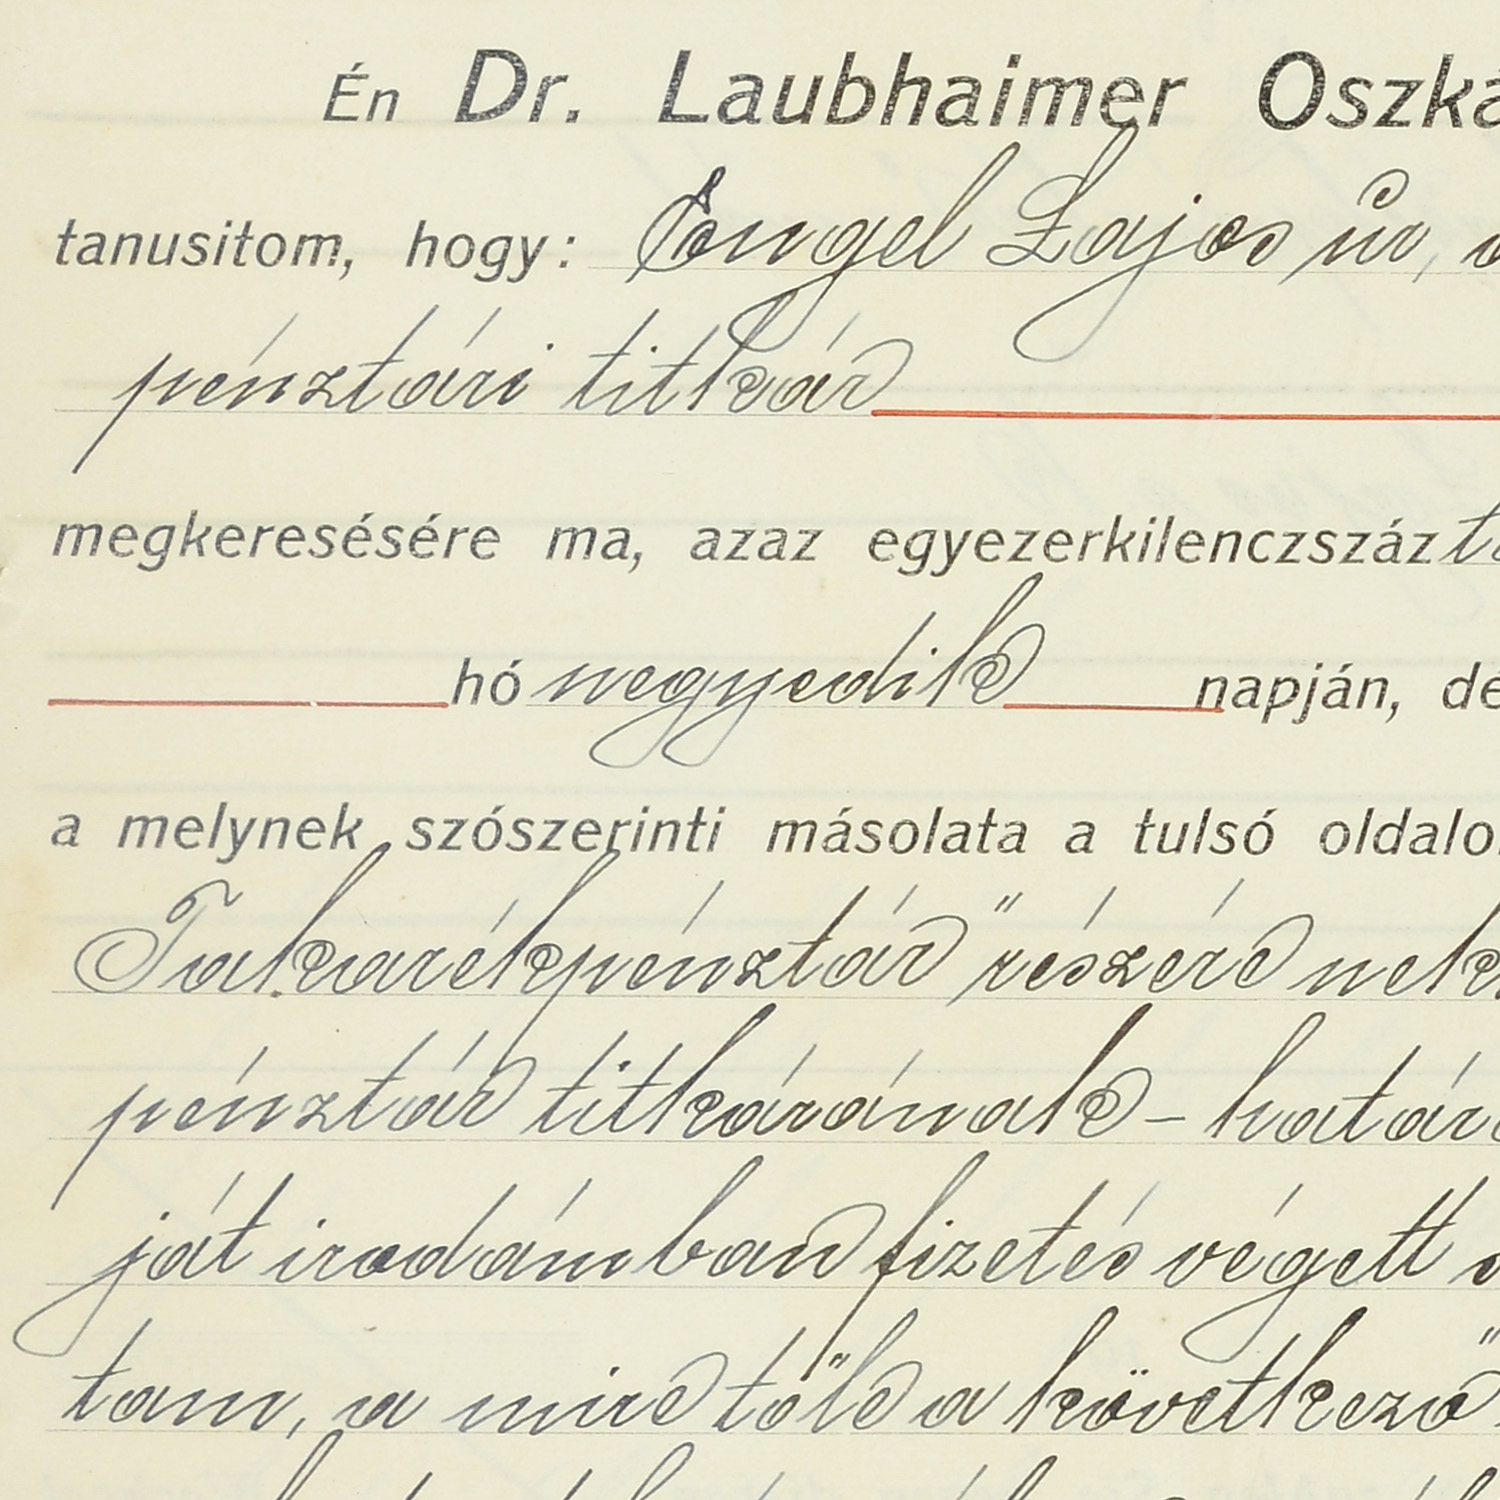 Én Dr. Laubhaimer Oszká
tanusitom, hogy: Engel Lajos úr, a
pénztári titkár
megkeresésére ma, azaz egyezerkilenczszáz
hó negyedik napján, de
a melynek szószerinti másolata a tulsó oldalo
Takarékpénztár" részére nek
pénztár titkárának - határ
ját irodámban fizetés végett
tam, a mire tőle a következő